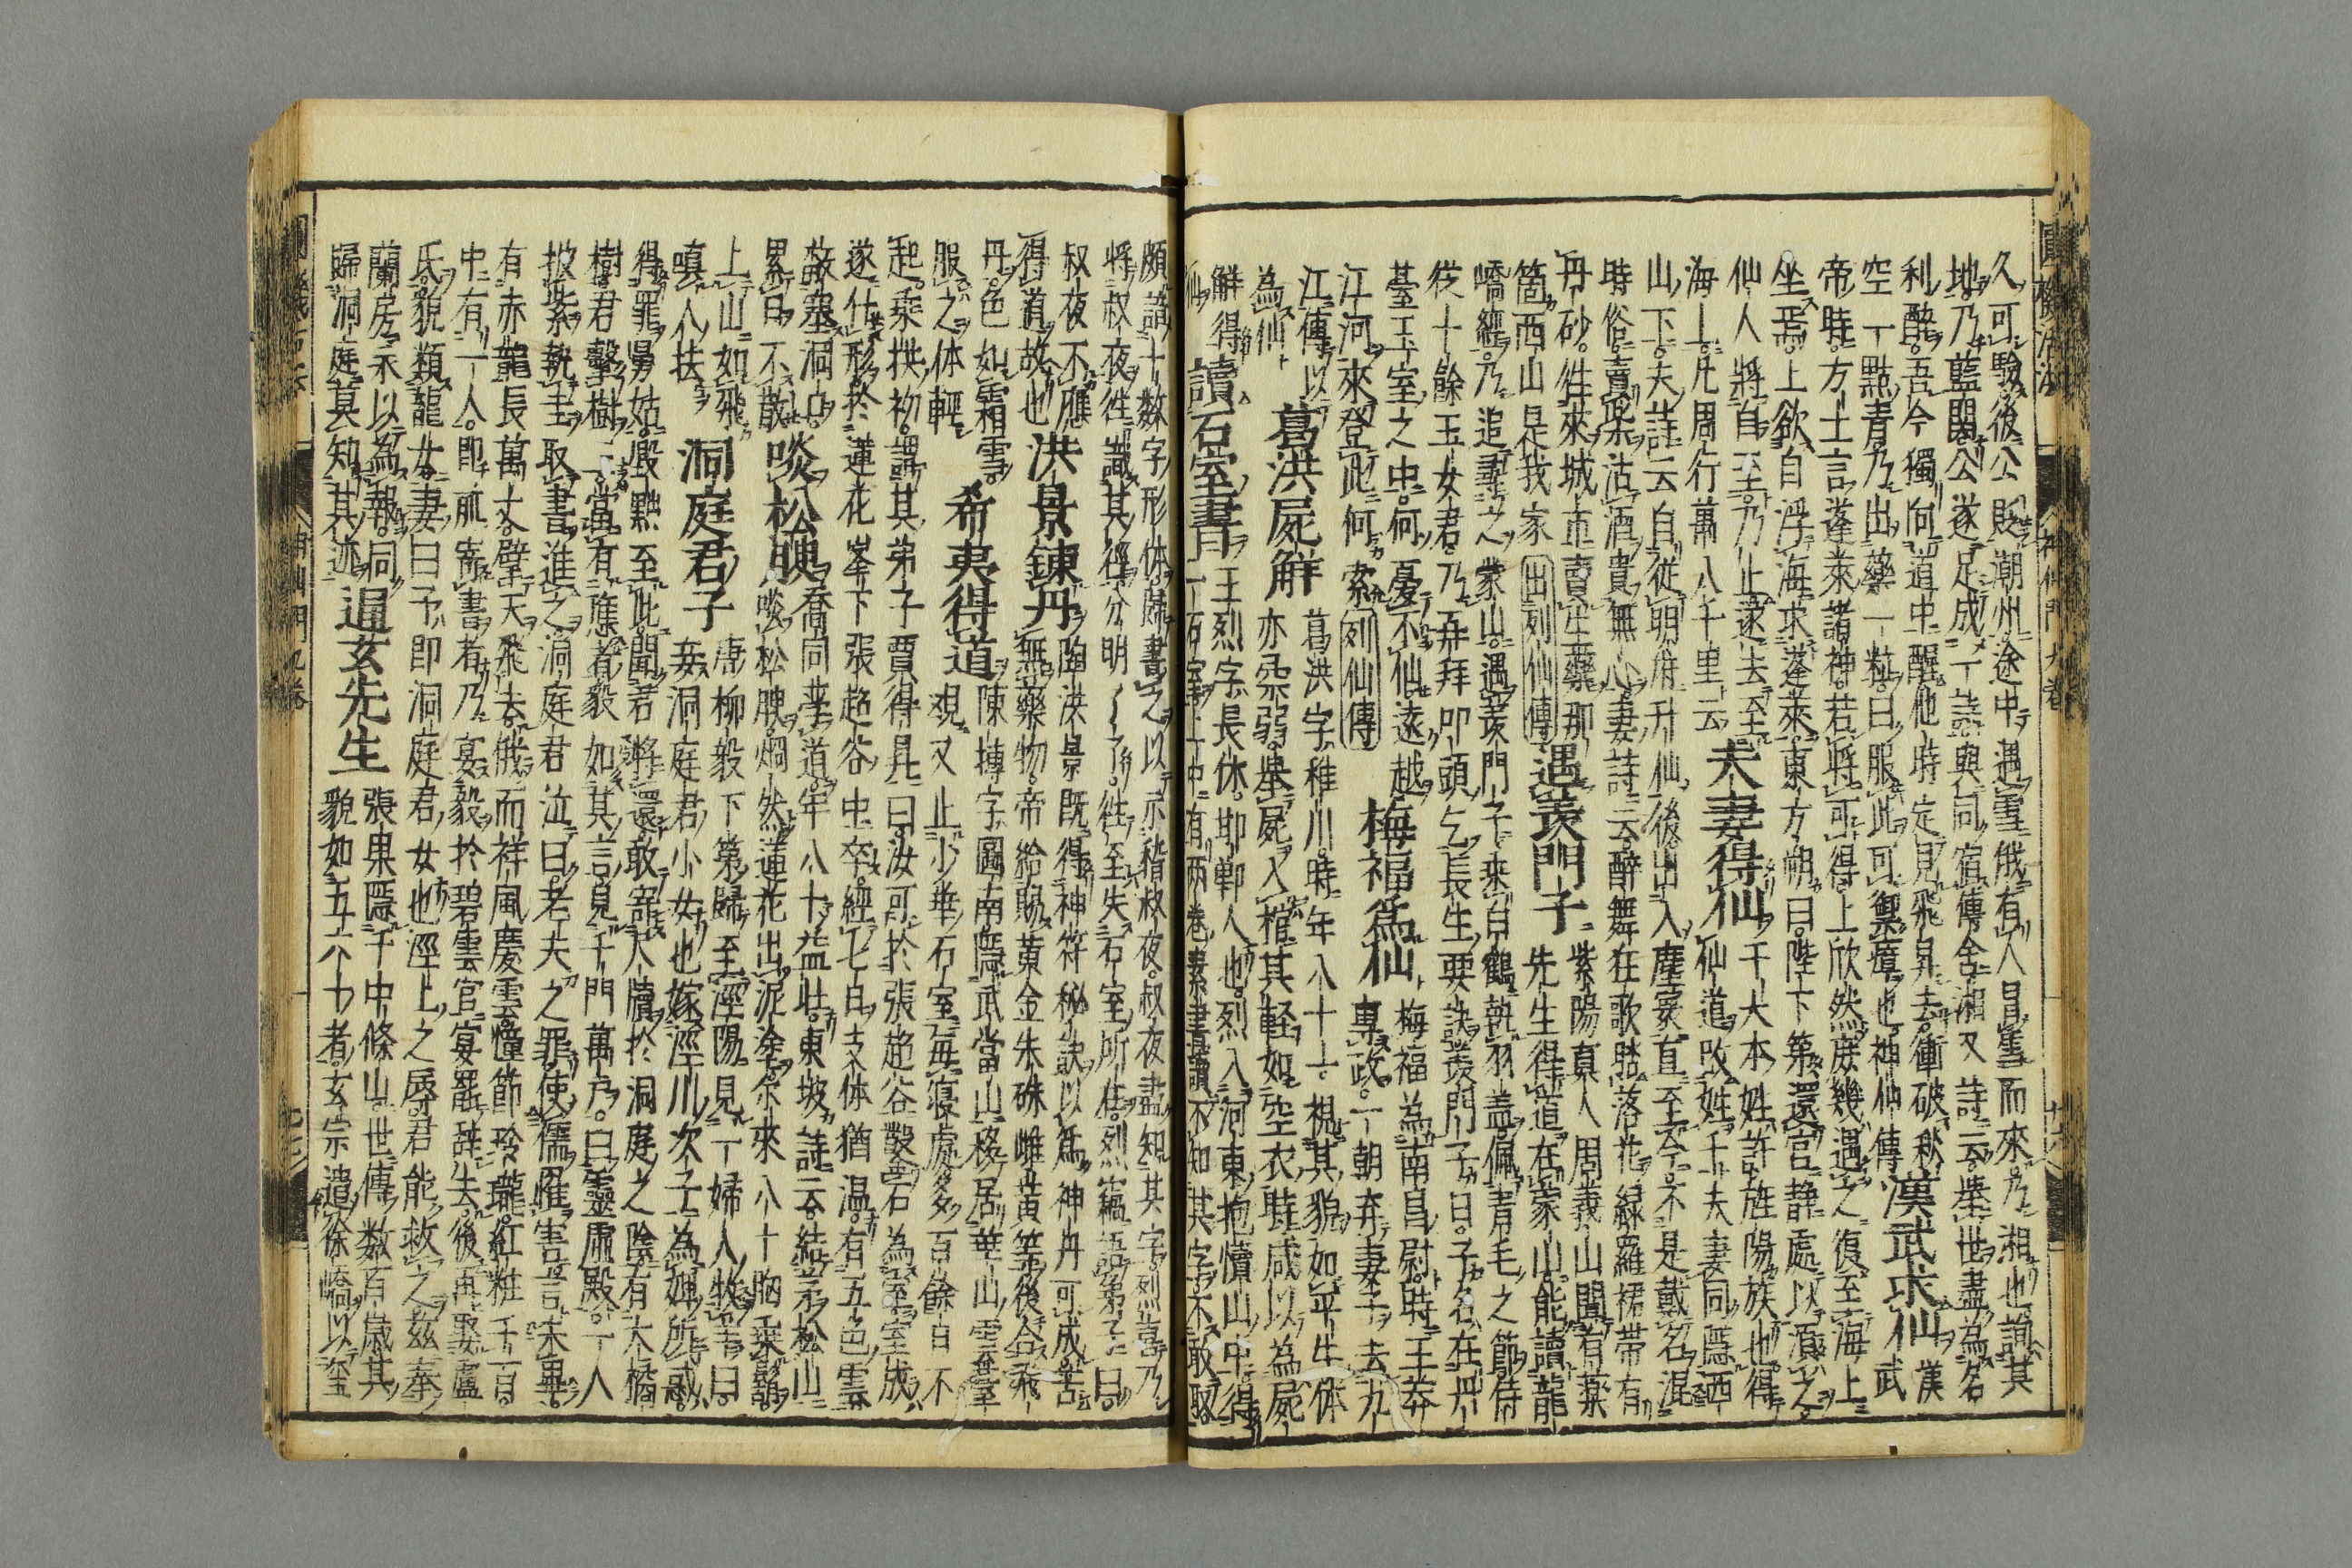 圓機活法 神仙門 九卷
久可驗後公貶潮州途中遇雪俄有人冒雪而來乃湘也詢其
地乃藍關公遂足成一詩與同宿傳舍湘又詩云舉世盡為名
利醉吾今獨向道中醒他時定見飛昇去衝破秋
空一點青乃出藥一粒曰服此可禦瘴也神仙傳
漢武求仙
漢
武
帝時方士言蓬萊諸神若將可得上欣然庶幾遇之復至海上
坐焉上欲自浮海求蓬萊東方朔曰陛下第還宮静處以須之
仙人將自至乃止遂去至
海上凡周行萬八千里云
夫妻得仙
于大本姓許旌陽族也得
仙道改姓于夫妻同隱西
山下夫詩云自從明府升仙後出入塵寰直至今不是戴名混
時俗賣柴沽酒貴無心妻詩云醉舞狂歌踏落花緑羅裙帶有
丹砂往來城市賣生藥那
箇西山是我家 出列仙傳
遇羨門子
紫陽真人周義山聞有欒
先生得道在蒙山能讀龍
嶠經乃追尋之蒙山遇羨門子乘白鶴執羽盖佩青毛之節侍
從十餘玉女君乃再拜叩頭乞長生要訣羨門子曰子名在丹
臺玉室之中何憂不仙遠越
江河來登此何索 列仙傳
梅福為仙
梅福為南昌尉時王莽
專政一朝弃妻子去九
江傳以
為仙
葛洪屍解
葛洪字稚川時年八十一視其貌如平生体
亦柔弱舉屍入棺其軽如空衣時咸以為屍
解得
仙
讀石室書
王烈字長休邯鄲人也烈入河東抱犢山中得
一石室室中有兩卷素書讀不知其字不敢取
頗諳十数字形体歸書之以示稽叔夜叔夜盡知其字烈喜乃
將叔夜往識其徑分明了了往至失石室所在烈竊語弟子曰
叔夜不應
得道故也
洪景鍊丹
陶洪景既得神符秘訣以為神丹可成苦
無藥物帝給賜黄金朱硃雌黄等後合飛
丹色如霜雪
服之体輕
希夷得道
陳摶字圖南隱武當山移居華山雲臺
覌又止少華石室每寝處多百餘日不
起乗拱初謂其弟子賈得昇曰汝可於張超谷鑿石為室室成
遂仕形於蓮花峯下張超谷中卒經七日支体猶温有五色雲
蔽塞洞口
累日不散
啖松腴
喬同學道年八十益壯東坡詩云結茅松山
啖松腴烱然蓮花出泥塗尒來八十胸乗鬍
上山如飛
嗔人扶
洞庭君子
唐柳毅下第歸至涇陽見一婦人牧羊曰
妾洞庭君小女也嫁涇川次子為婢所惑
得罪舅姑毀黜至此聞君將還敢寄尺牘於洞庭之陰有大橘
樹君擊樹三當有應者毅如其言見千門萬户曰靈虛殿一人
披紫執圭取書進之洞庭君泣曰老夫之罪使孺罹害言未畢
有赤龍長萬丈擘天飛去俄而祥風慶雲幢節玲瓏紅粧千百
中有一人即前寄書者乃宴毅於碧雲宮宴罷辞去後再娶盧
氏貌類龍女妻曰予即洞庭君女也涇上之辱君能救之茲奉
蘭房永以為報同
歸洞庭莫知其迹
逼玄先生
張果隱于中條山世傳數百歲其
貌如五六十者玄宗遣徐嶠以璽
神仙門 九卷